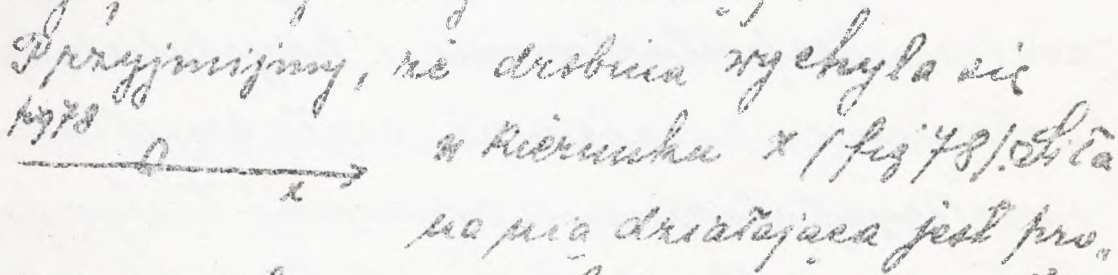 Przyjmijmy, że drobina wychyla się
fig 78
w kierunku x (fig 78). Siła
x
na nią działająca jest pro„